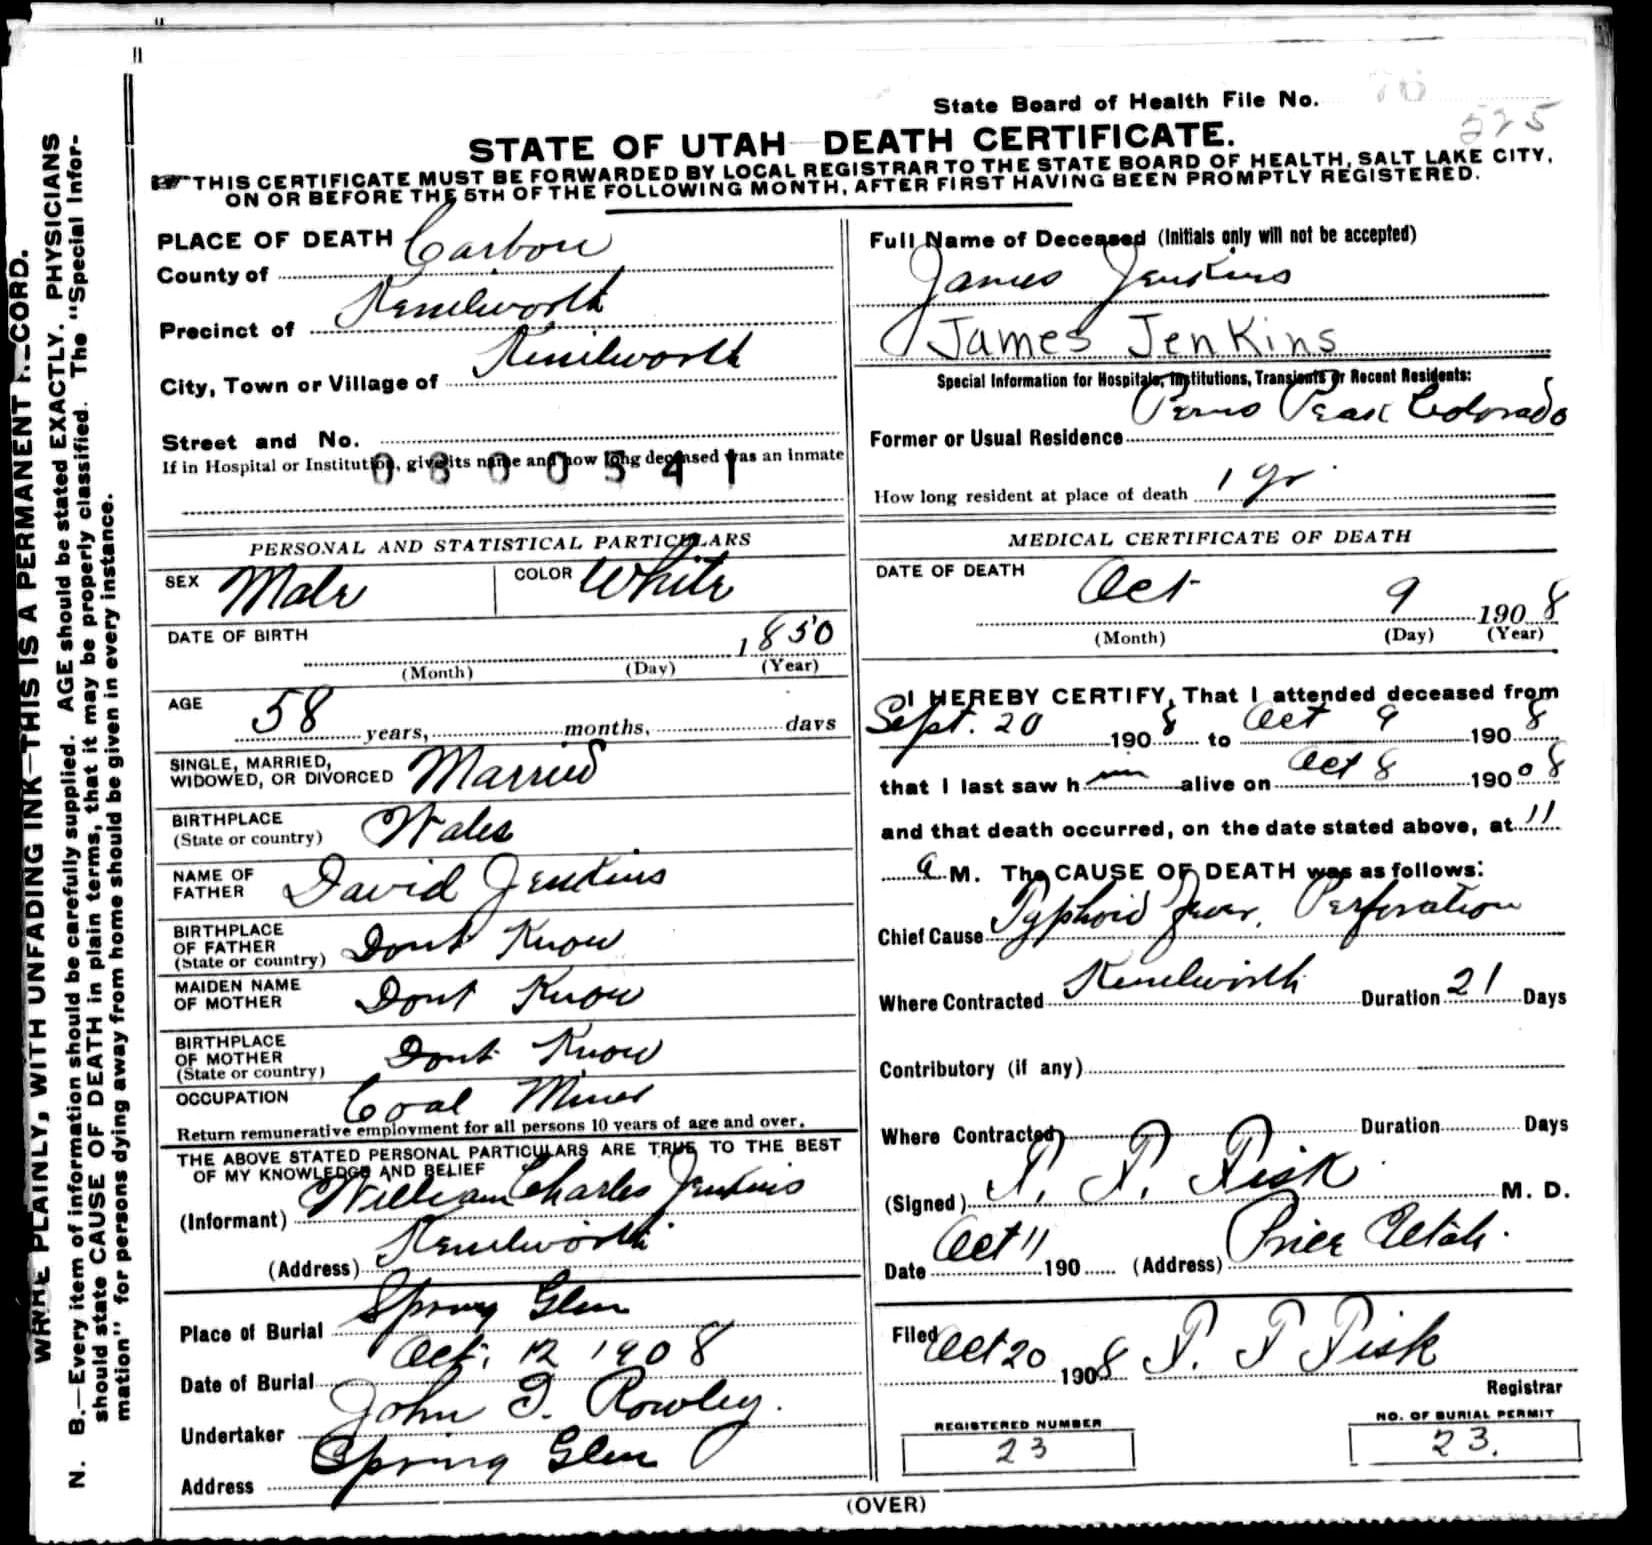 State Board of Health File No.
525
STATE OF UTAH—DEATH CERTIFICATE.
THIS CERTIFICATE MUST BE FORWARDED BY LOCAL REGISTRAR TO THE STATE BOARD OF HEALTH, SALT LAKE CITY,
ON OR BEFORE THE 5TH OF THE FOLLOWING MONTH, AFTER FIRST HAVING BEEN PROMPTLY REGISTERED.
WRITE PLAINLY, WITH UNFADING INK—THIS IS A PERMANENT RECORD.
N. B.—Every item of information should be carefully supplied. AGE should be stated EXACTLY. PHYSICIANS
should state CAUSE OF DEATH in plain terms, that it may be properly classified. The "Special Infor-
mation" for persons dying away from home should be given in every instance.
PLACE OF DEATH
County of Carbon
Precinct of Kenilworth
City, Town or Village of Kenilworth
Street and No.
If in Hospital or Institution, give its name and how long deceased was an inmate
0800541
PERSONAL AND STATISTICAL PARTICULARS
SEX Male COLOR White
DATE OF BIRTH 1850
(Month) (Day) (Year)
AGE 58 years, months, days
SINGLE, MARRIED,
WIDOWED, OR DIVORCED Married
BIRTHPLACE
(State or country) Wales
NAME OF
FATHER David Jenkins
BIRTHPLACE
OF FATHER
(State or country) Dont Know
MAIDEN NAME
OF MOTHER Dont Know
BIRTHPLACE
OF MOTHER
(State or country) Dont Know
OCCUPATION Coal Miner
Return remunerative employment for all persons 10 years of age and over.
THE ABOVE STATED PERSONAL PARTICULARS ARE TRUE TO THE BEST
OF MY KNOWLEDGE AND BELIEF
(Informant) William Charles Jenkins
(Address) Kenilworth
Place of Burial Spring Glen
Date of Burial Oct. 12 1908
Undertaker John T. Rowley.
Address Spring Glen
Full Name of Deceased (Initials only will not be accepted)
James Jenkins
James Jenkins
Special Information for Hospitals, Institutions, Transients or Recent Residents:
Former or Usual Residence Peak Colorado
How long resident at place of death 1 yr
MEDICAL CERTIFICATE OF DEATH
DATE OF DEATH
Oct 9 1908
(Month) (Day) (Year)
I HEREBY CERTIFY, That I attended deceased from
Sept. 20 1908 to Oct 9 1908
that I last saw him alive on Oct 8 190 08
and that death occurred, on the date stated above, at 11
a M. The CAUSE OF DEATH was as follows:
Chief Cause Typhoid fever, Perforation
Where Contracted Kenilworth Duration 21 Days
Contributory (if any)
Where Contracted Duration Days
(Signed) F. F. Fisk M. D.
Date Oct 11 190 (Address) Price Utah.
Filed Oct 20 1908 F. F. Fisk
Registrar
REGISTERED NUMBER
23
NO. OF BURIAL PERMIT
23.
(OVER)